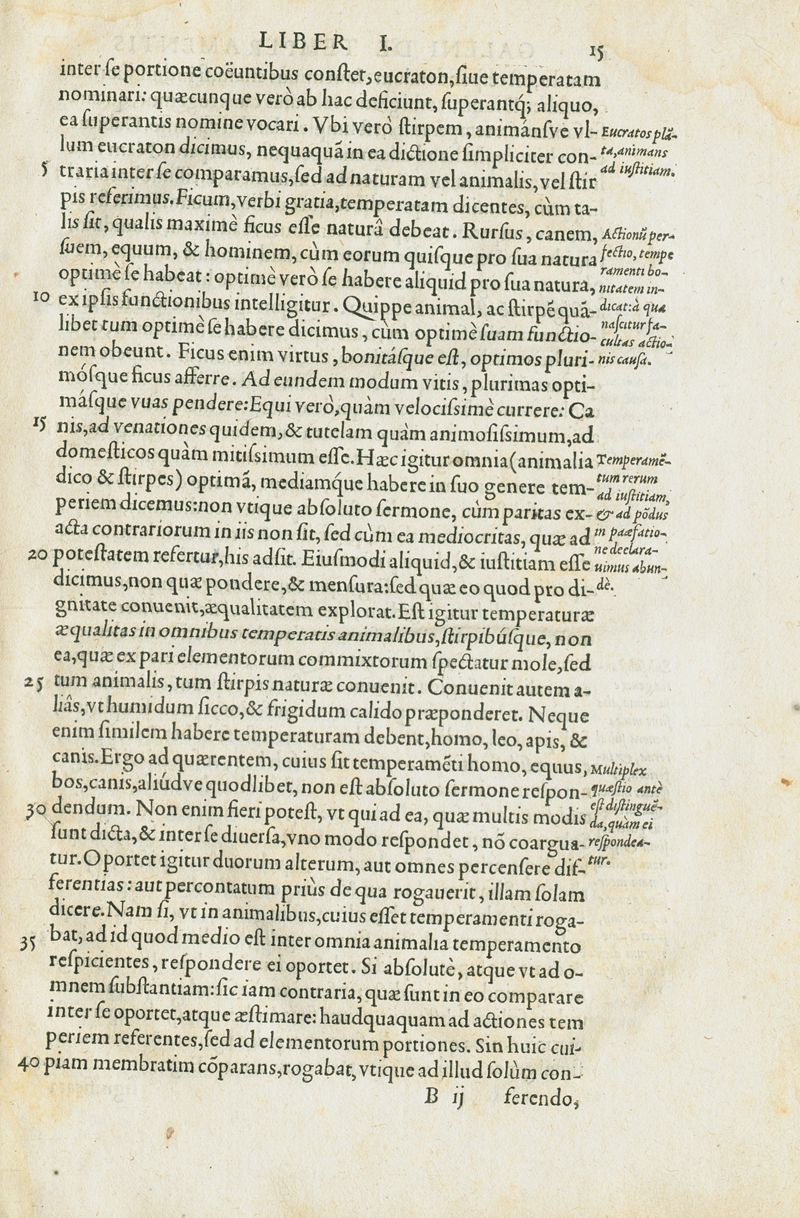 LIBER I. 15
inter ſe portione coëuntibus conſtet, eucraton, ſiue temperatam
nominari: quæcunque verò ab hac deficiunt, ſuperantq́; aliquo,
ea ſuperantis nomine vocari. Vbi verò ſtirpem, animánſve vl-
lum eucraton dicimus, nequaquā in ea dictione ſimpliciter con-
5 traria inter ſe comparamus, ſed ad naturam vel animalis, vel ſtir
pis referimus. Ficum, verbi gratia, temperatam dicentes, cùm ta-
lis ſit, qualis maximè ficus eſſe naturâ debeat. Rurſus, canem,
ſuem, equum, & hominem, cùm eorum quiſque pro ſua natura
optimè ſe habeat: optimè verò ſe habere aliquid pro ſua natura,
10 ex ipſis functionibus intelligitur. Quippe animal, ac ſtirpē quā-
libet tum optimè ſe habere dicimus, cùm optimè ſuam functio-
nem obeunt. Ficus enim virtus, bonitáſque eſt, optimos pluri-
móſque ficus afferre. Ad eundem modum vitis, plurimas opti-
máſque vuas pendere: Equi verò, quàm velociſsimè currere: Ca
15 nis, ad venationes quidem, & tutelam quàm animoſiſsimum, ad
domeſticos quàm mitiſsimum eſſe. Hæc igitur omnia (animalia
dico & ſtirpes) optimā, mediamq́ue habere in ſuo genere tem-
periem dicemus: non vtique abſoluto ſermone, cùm paritas ex-
acta contrariorum in iis non ſit, ſed cùm ea mediocritas, quæ ad
20 poteſtatem refertur, his adſit. Eiuſmodi aliquid, & iuſtitiam eſſe
dicimus, non quæ pondere, & menſura: ſed quæ eo quod pro di-
gnitate conuenit, æqualitatem explorat. Eſt igitur temperaturæ
æqualitas in omnibus temperatis animalibus, ſtirpibúſque, non
ea, quæ ex pari elementorum commixtorum ſpectatur mole, ſed
25 tum animalis, tum ſtirpis naturæ conuenit. Conuenit autem a-
liâs, vt humidum ſicco, & frigidum calido præponderet. Neque
enim ſimilem habere temperaturam debent, homo, leo, apis, &
canis. Ergo ad quærentem, cuius ſit temperamēti homo, equus,
bos, canis, aliúdve quodlibet, non eſt abſoluto ſermone reſpon-
30 dendum. Non enim fieri poteſt, vt qui ad ea, quæ multis modis
ſunt dicta, & inter ſe diuerſa, vno modo reſpondet, nō coargua-
tur. Oportet igitur duorum alterum, aut omnes percenſere dif-
ferentias: aut percontatum priùs de qua rogauerit, illam ſolam
dicere. Nam ſi, vt in animalibus, cuius eſſet temperamenti roga-
35 bat, ad id quod medio eſt inter omnia animalia temperamento
reſpicientes, reſpondere ei oportet. Si abſolutè, atque vt ad o-
mnem ſubſtantiam: ſic iam contraria, quæ ſunt in eo comparare
inter ſe oportet, atque æſtimare: haudquaquam ad actiones tem
periem referentes, ſed ad elementorum portiones. Sin huic cui-
40 piam membratim cōparans, rogabat, vtique ad illud ſolùm con-
B ij ferendo,
Eucratos plā-
ta, animans
ad iuſtitiam.
Actionū per-
fectio, tempe
ramenti bo-
nitatem in-
dicat: à qua
naſcitur fa-
cultas actio-
nis cauſa.
Temperamē-
tum rerum
ad iuſtitiam,
& ad pōdus
in paæfatio-
ne declara-
uimus abun-
dè.
Multiplex
quæſtio antè
eſt diſtinguē-
da, quàm ei
reſpondea-
tur.